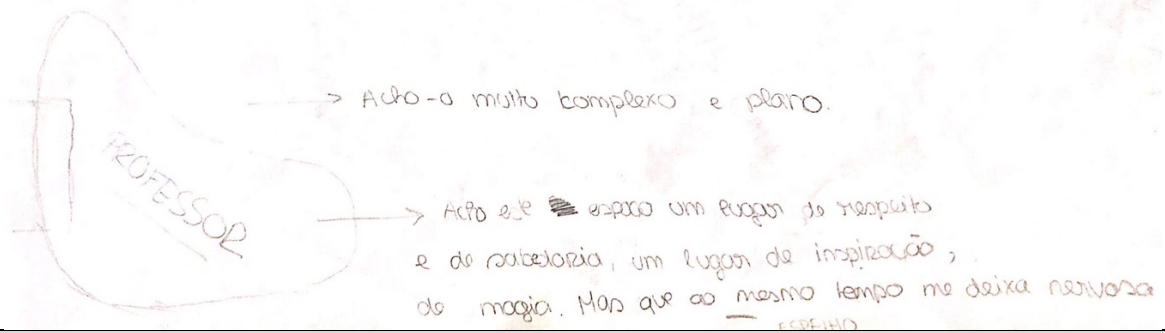 Acho-o muito complexo e plano.
PROFESSOR
Acho este espaço um lugar de respeito
e de sabedoria, um lugar de inspiração,
de magia. Mas que ao mesmo tempo me deixa nervosa
ESPELHO